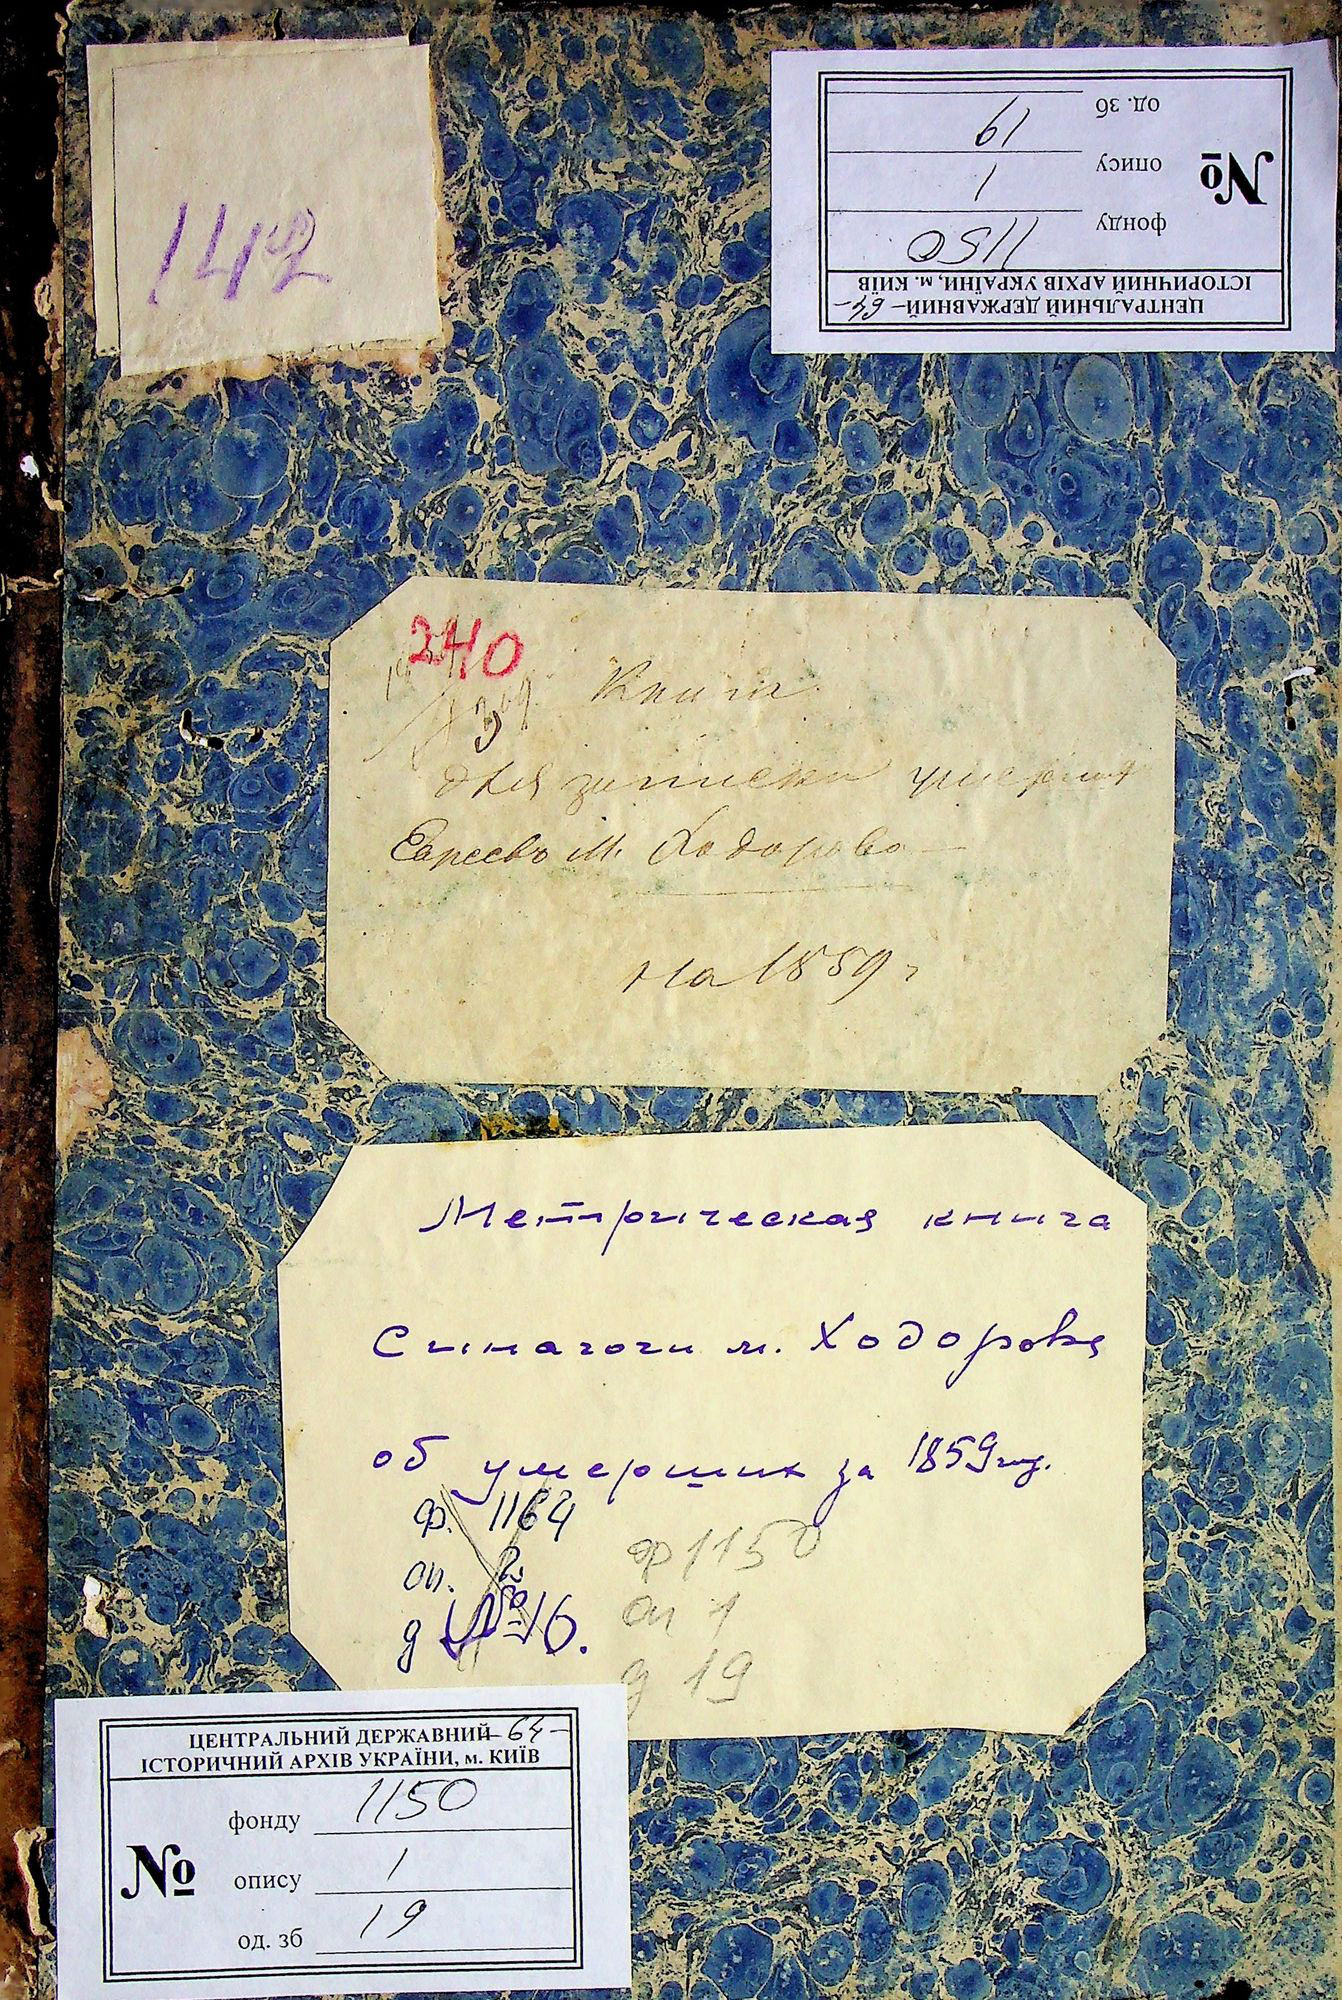 142
ЦЕНТРАЛЬНИЙ ДЕРЖАВНИЙ -64-
ІСТОРИЧНИЙ АРХІВ УКРАЇНИ, м. КИЇВ
№
фонду 1150
опису 1
од. зб 19
240
Книга
для записки умерших
Евреевъ м. Ходорова
на 1859 г
Метрическая книга
Синагоги м. Ходорова
об умерших за 1859 год.
ф. 1164
оп. 2.
д №16.
ф 1150
оп 1
д 19
ЦЕНТРАЛЬНИЙ ДЕРЖАВНИЙ -64-
ІСТОРИЧНИЙ АРХІВ УКРАЇНИ, м. КИЇВ
№
фонду 1150
опису 1
од. зб 19